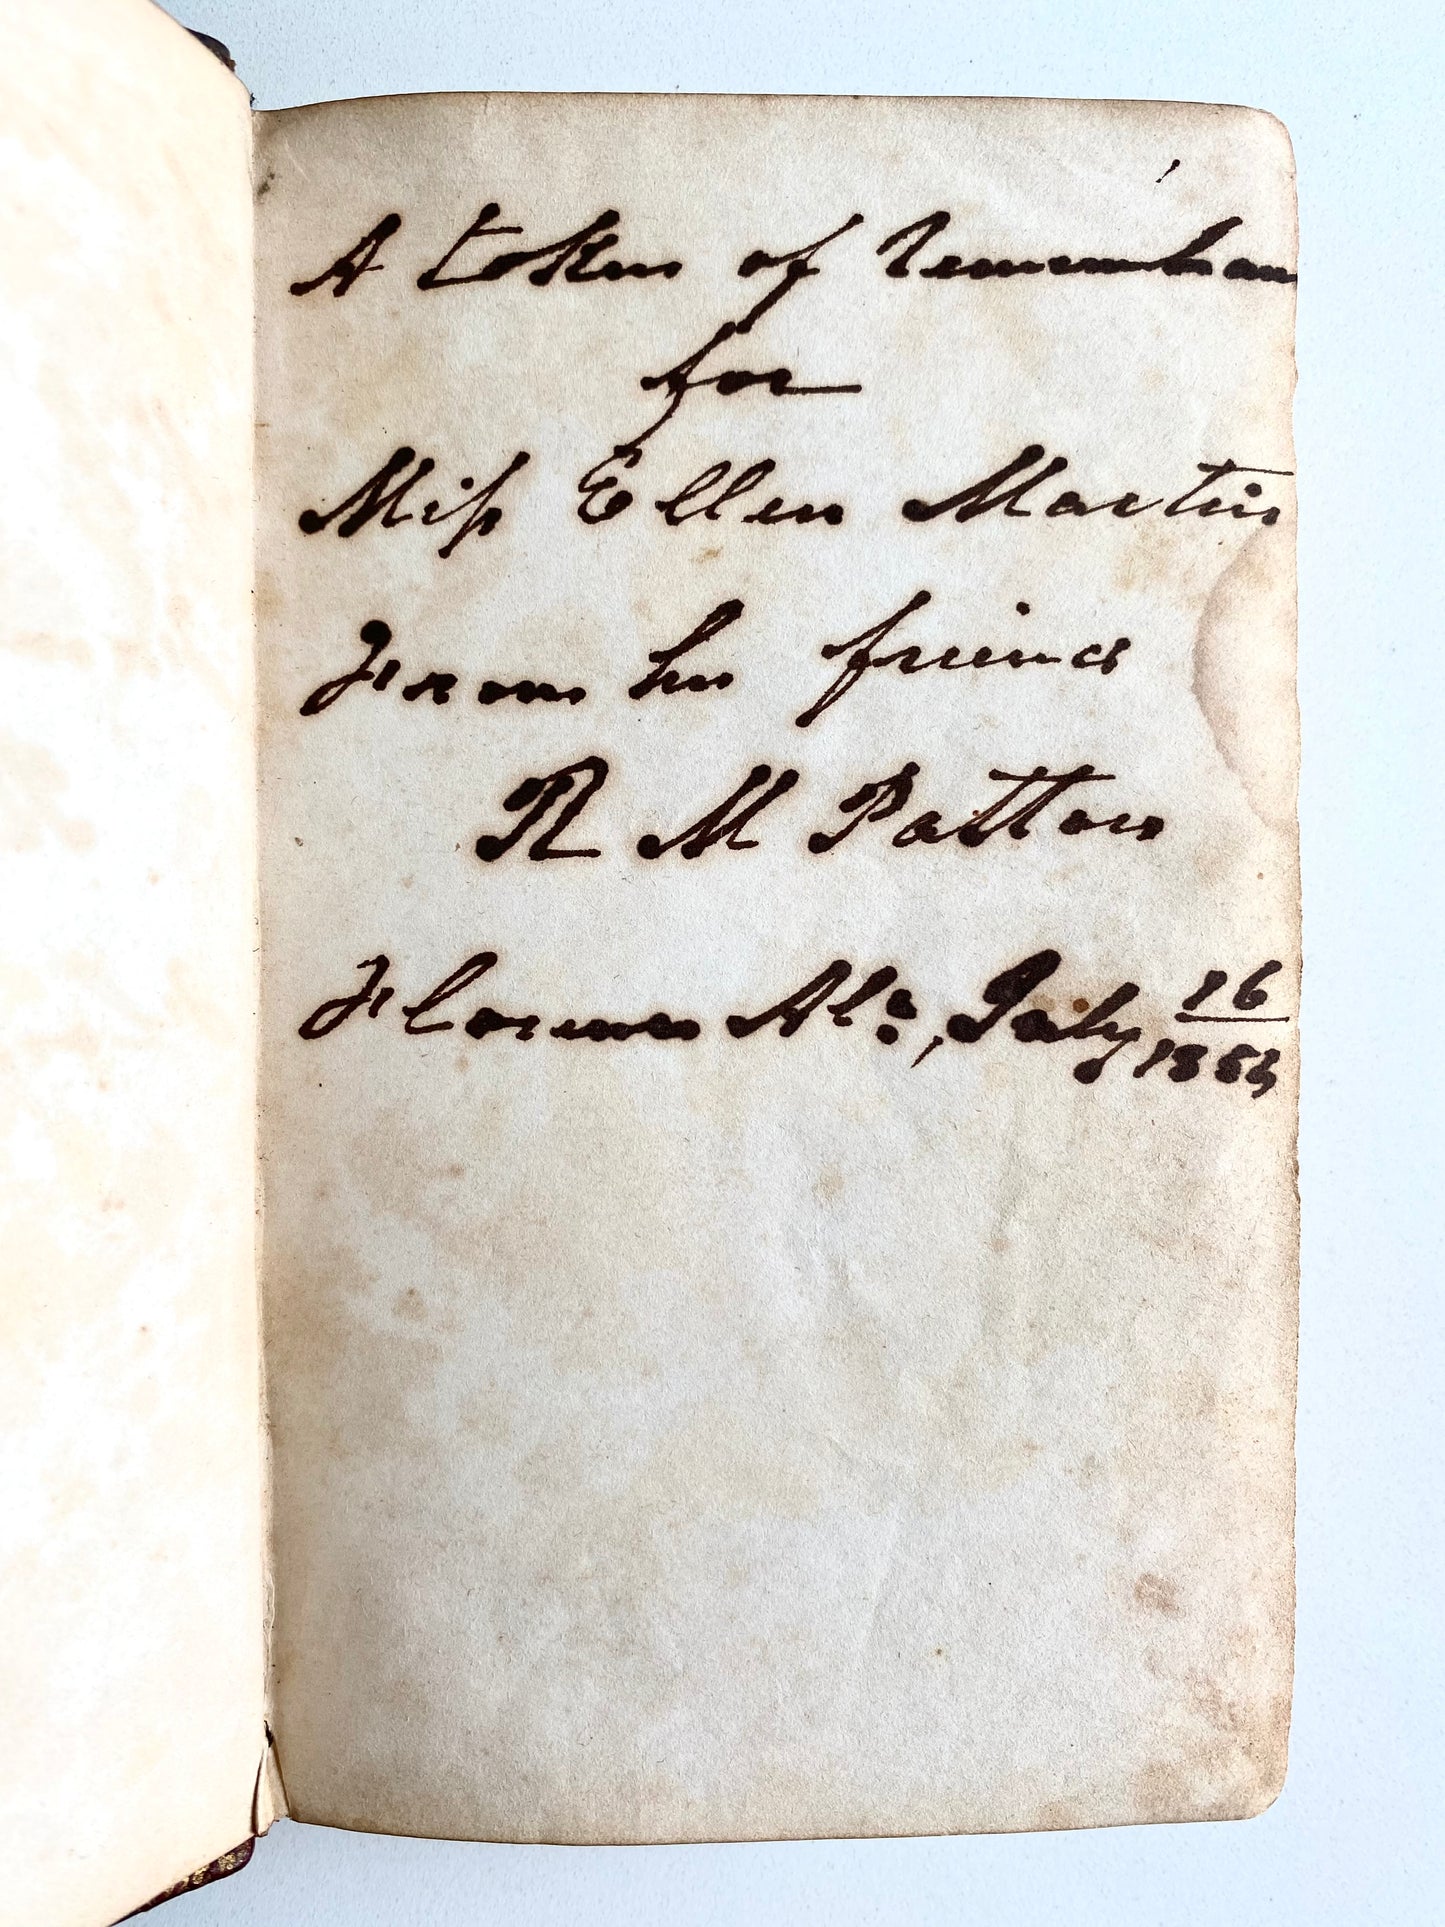 A token of Remembran
for
Miss Ellen Martin
From her friend
R M Patton
Florence Ala, July 16
1853